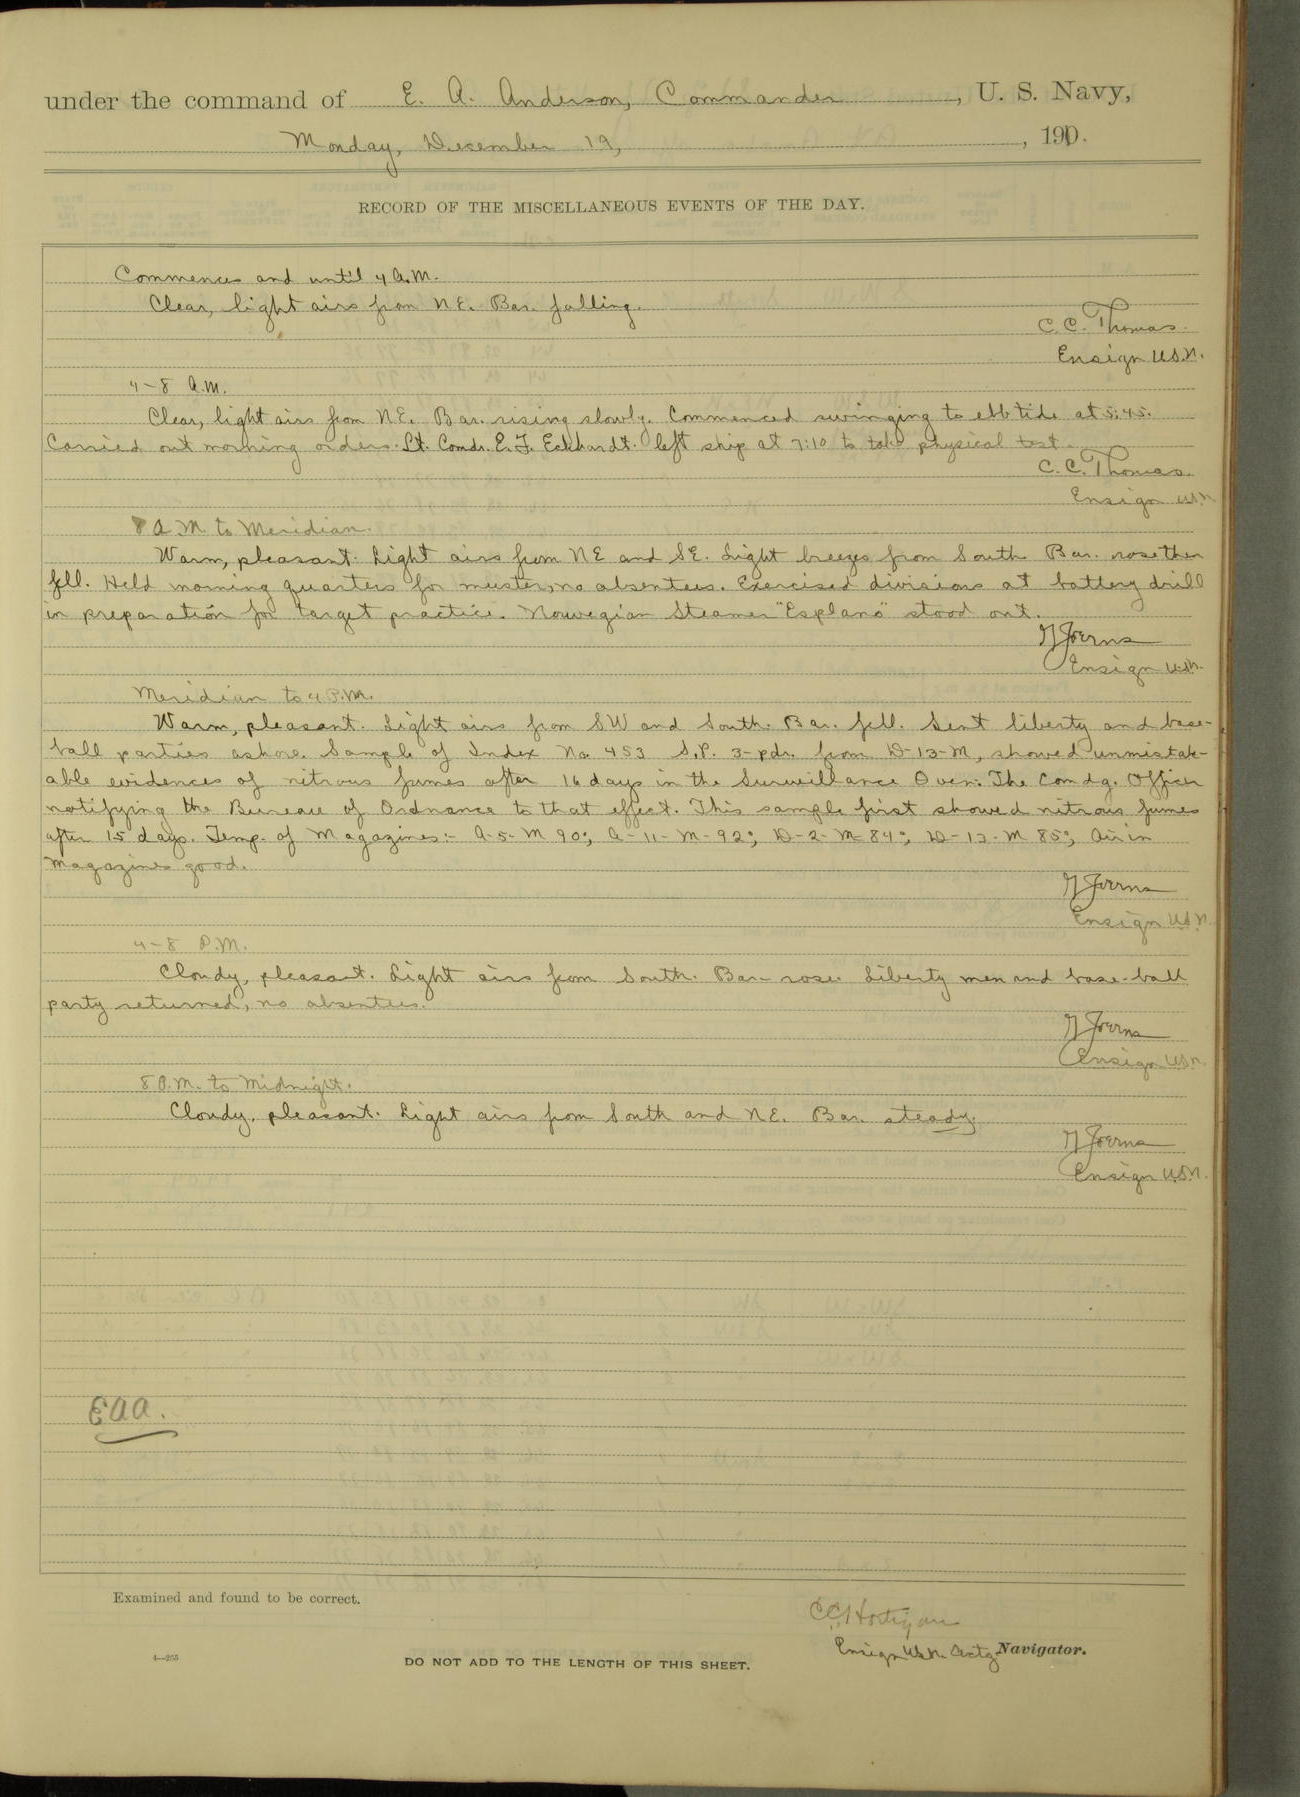 under the command of E. A. Anderson, Commander, U. S. Navy,
Monday, December 19, 1910.
RECORD OF THE MISCELLANEOUS EVENTS OF THE DAY.
Commences and until 4 A.M.
Clear, light airs from NE. Bar. falling.
C. C. Thomas
Ensign U.S.N.
4-8 A.M.
Clear, light airs from NE. Bar. rising slowly. Commenced swinging to ebb tide at 5:45.
Carried out morning orders. Lt. Comdr. E. F. Eckhardt left ship at 7:10 to take physical test.
C. C. Thomas
Ensign USN
8 A.M. to Meridian.
Warm, pleasant. Light airs from NE and SE. Light breezes from South. Bar. rose then
fell. Held morning quarters for muster, no absentees. Exercised divisions at battery drill
in preparation for target practice. Norwegian Steamer "Esplano" stood out.
Ensign USN.
Meridian to 4 P.M.
Warm, pleasant. Light airs from SW and South. Bar. fell. Sent liberty and base-
ball parties ashore. Sample of Index No. 453 S.P. 3-pdr. from D-13-M, showed unmistak-
able evidences of nitrous fumes after 16 days in the Surveillance Oven. The Comdg. Officer
notifying the Bureau of Ordnance to that effect. This sample first showed nitrous fumes
after 15 days. Temp. of Magazines:- A-5-M 90°; A-11-M-92°; D-2-M-84°; D-13-M 85°; Air in
magazines good.
Ensign U.S.N.
4-8 P.M.
Cloudy, pleasant. Light airs from South. Bar. rose. Liberty men and base-ball
party returned, no absentees.
Ensign USN.
8 P.M. to Midnight.
Cloudy, pleasant. Light airs from South and NE. Bar. steady.
Ensign U.S.N.
EAA.
Examined and found to be correct.
C. C. Hartigan
Ensign U.S.N. Actg Navigator.
4—255
DO NOT ADD TO THE LENGTH OF THIS SHEET.